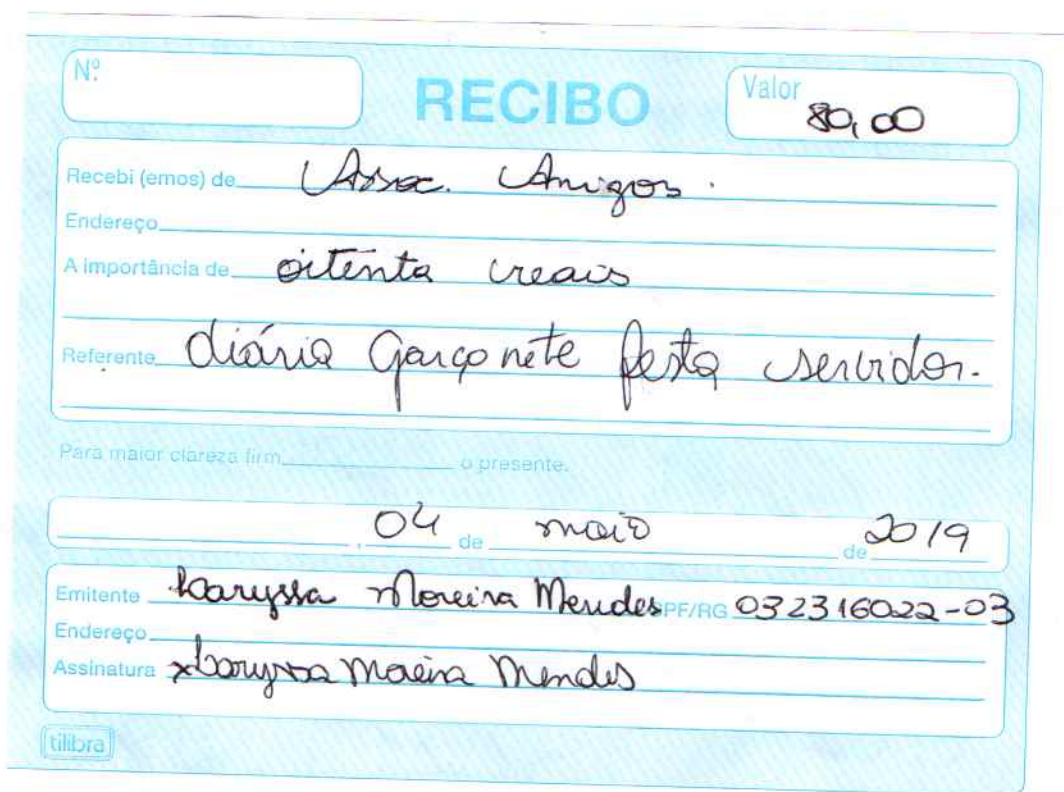 Nº
RECIBO
Valor 80,00
Recebi (emos) de Assoc. Amigos.
Endereço
A importância de oitenta reais
Referente diária garçonete festa servidor.
Para maior clareza firm o presente.
, 04 de maio de 2019
Emitente Laryssa Moreira Mendes CPF/RG 032316022-03
Endereço
Assinatura x Laryssa Moreira Mendes
tilibra